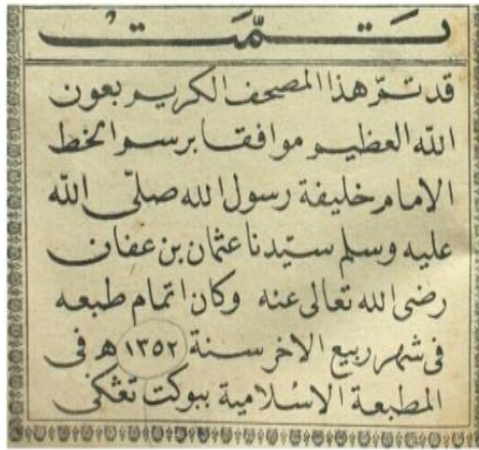 تمّت
قد تمّ هذا المصحف الكريم بعون
الله العظيم موافقا برسم الخط
الامام خليفة رسول الله صلّى الله
عليه وسلم سيّدنا عثمان بن عفان
رضى الله تعالى عنه وكان اتمام طبعه
فى شهر ربيع الاخر سنة ١٣٥٢ ه فى
المطبعة الاسلامية ببوكت تڠكى